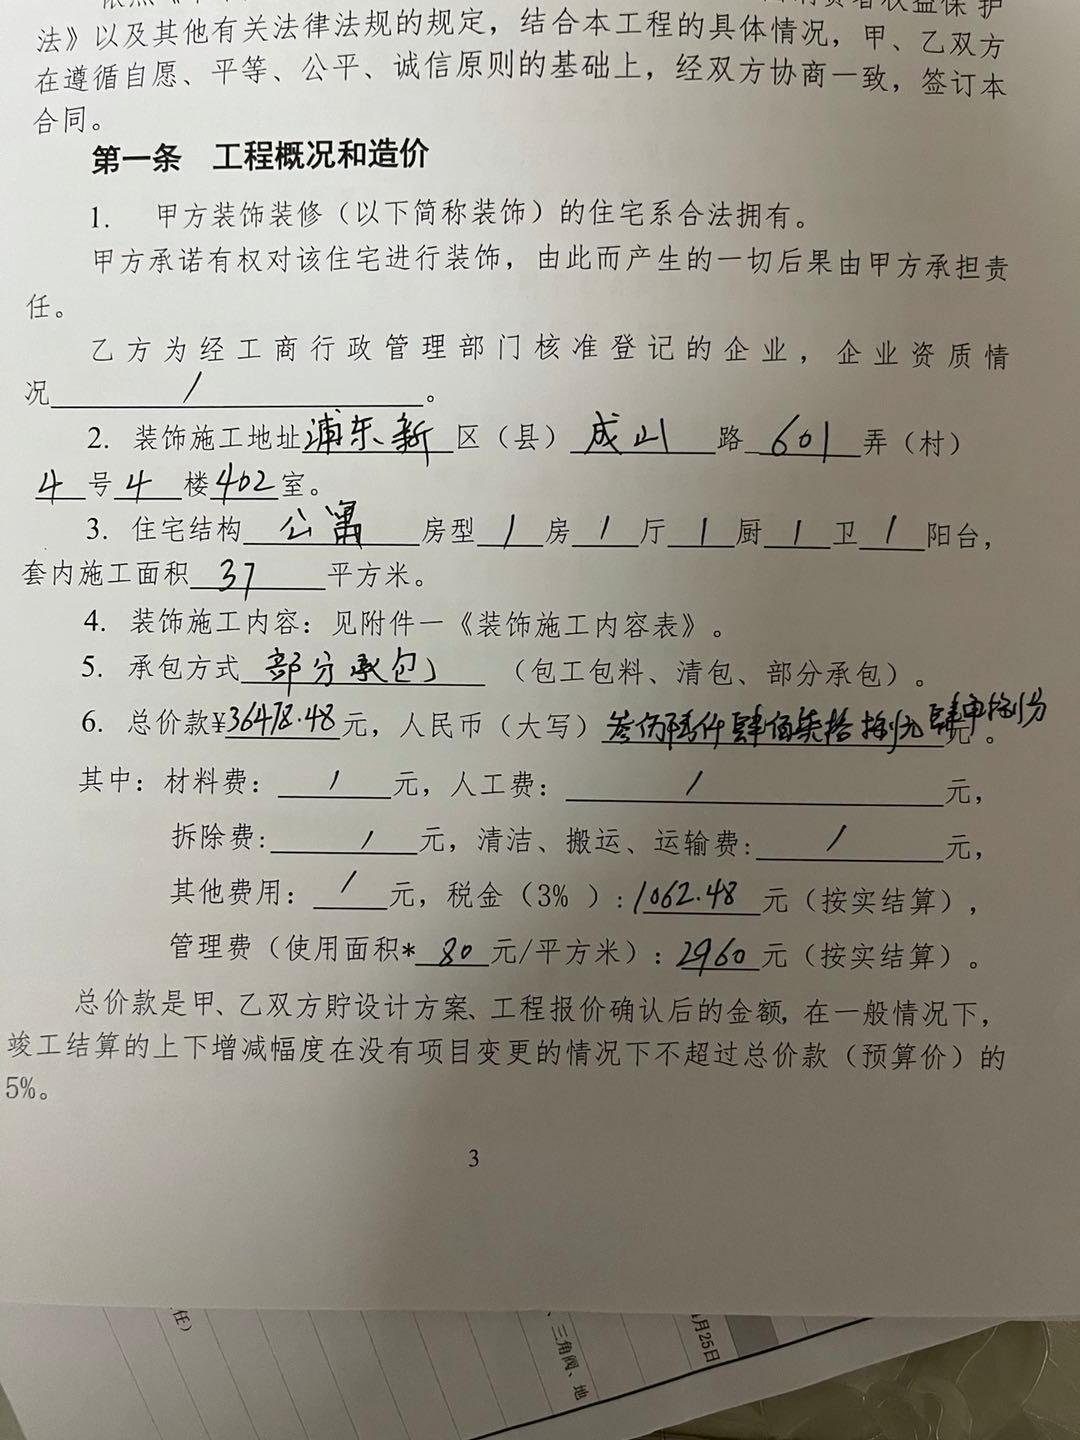 法》以及其他有关法律法规的规定，结合本工程的具体情况，甲、乙双方
在遵循自愿、平等、公平、诚信原则的基础上，经双方协商一致，签订本
合同。
第一条 工程概况和造价
1. 甲方装饰装修（以下简称装饰）的住宅系合法拥有。
甲方承诺有权对该住宅进行装饰，由此而产生的一切后果由甲方承担责
任。
乙方为经工商行政管理部门核准登记的企业，企业资质情
况 / 。
2. 装饰施工地址浦东新区（县）成山路 601 弄（村）
4号4楼402室。
3. 住宅结构 公寓 房型 1 房 1 厅 1 厨 1 卫 1 阳台，
套内施工面积 37 平方米。
4. 装饰施工内容：见附件一《装饰施工内容表》。
5. 承包方式 部分承包 （包工包料、清包、部分承包）。
6. 总价款¥36478.48元，人民币（大写）叁佰陆仟肆佰柒拾捌元肆角捌分元。
其中：材料费： / 元，人工费： / 元，
拆除费： / 元，清洁、搬运、运输费： / 元，
其他费用： / 元，税金（3% ）：1062.48 元（按实结算），
管理费（使用面积* 80 元/平方米）：2960元（按实结算）。
总价款是甲、乙双方貯设计方案、工程报价确认后的金额，在一般情况下，
竣工结算的上下增减幅度在没有项目变更的情况下不超过总价款（预算价）的
5%。
3
任）
、三角阀、地
月25日